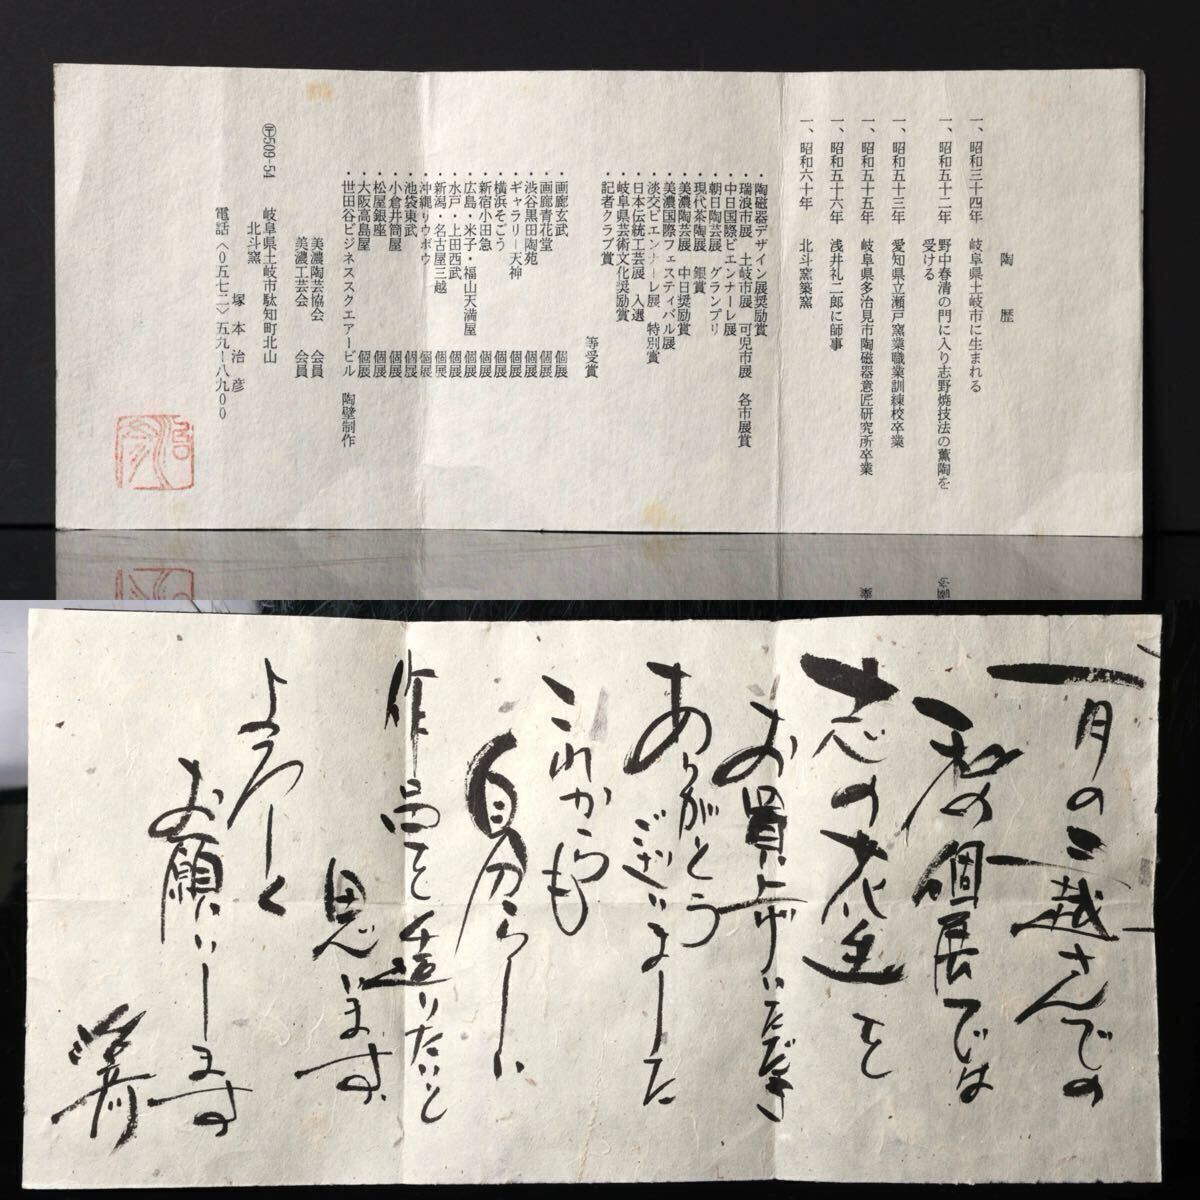 陶歴
一、昭和三十四年 岐阜県土岐市に生まれる
一、昭和五十二年 野中春清の門に入り志野焼技法の薫陶を
受ける
一、昭和五十三年 愛知県立瀬戸窯業職業訓練校卒業
一、昭和五十五年 岐阜県多治見市陶磁器意匠研究所卒業
一、昭和五十六年 浅井礼二郎に師事
一、昭和六十年 北斗窯築窯
・陶磁器デザイン展奨励賞
・瑞浪市展 土岐市展 可児市展 各市展賞
・中日国際ビエンナーレ展
・朝日陶芸展 グランプリ
・現代茶陶展 銀賞
・美濃陶芸展 中日奨励賞
・美濃国際フェスティバル展
・淡交ビエンナーレ展、特別賞
・日本伝統工芸展 入選
・岐阜県芸術文化奨励賞
・記者クラブ賞
等受賞
・画廊玄武 個展
・画廊青花堂 個展
・渋谷黒田陶苑 個展
・ギャラリー天神 個展
・横浜そごう 個展
・新宿小田急 個展
・広島・米子・福山天満屋 個展
・水戸・上田西武 個展
・新潟・名古屋三越 個展
・沖縄リウボウ 個展
・池袋東武 個展
・小倉井筒屋 個展
・松屋銀座 個展
・大阪高島屋 個展
・世田谷ビジネススクエアービル 陶壁制作
美濃陶芸協会 会員
美濃工芸会 会員
〒509-54 岐阜県土岐市駄知町北山
北斗窯
塚本治彦
電話〈〇五七二〉五九-八九〇〇
治彦
一月の三越さんでの
私の個展では
志の花生を
お買上げいただき
ありがとう
ございました
これからも
自分らしい
作品を造りたいと
思います
よろしく
お願いします